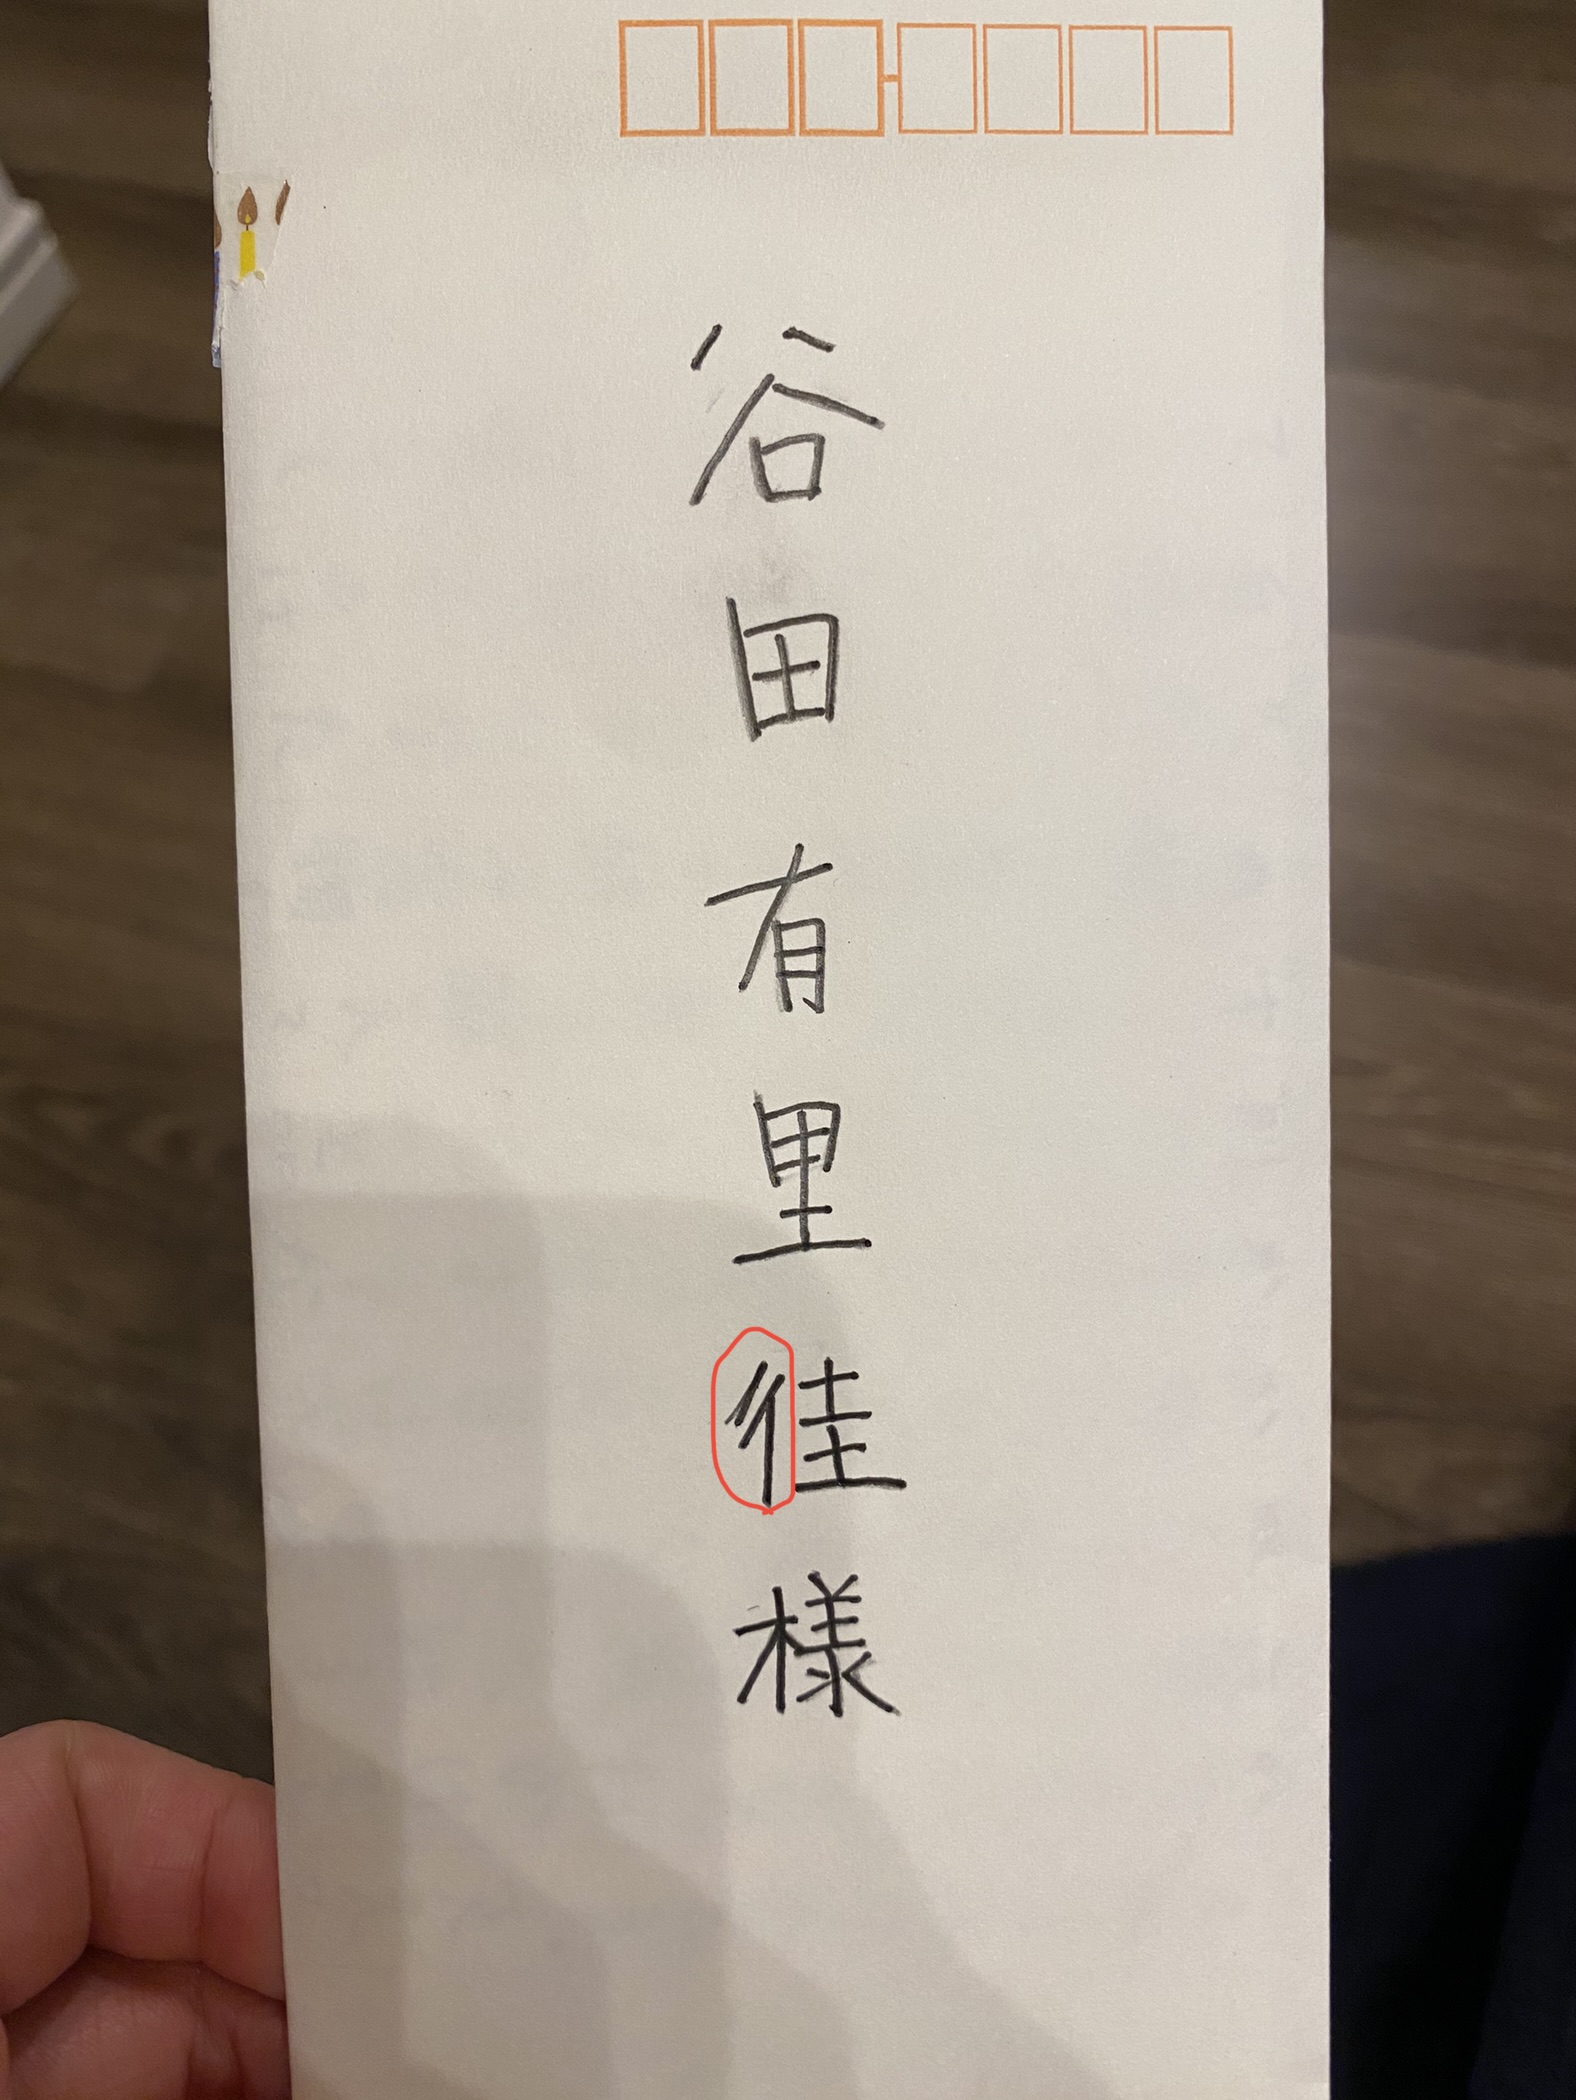 谷田有里徍様